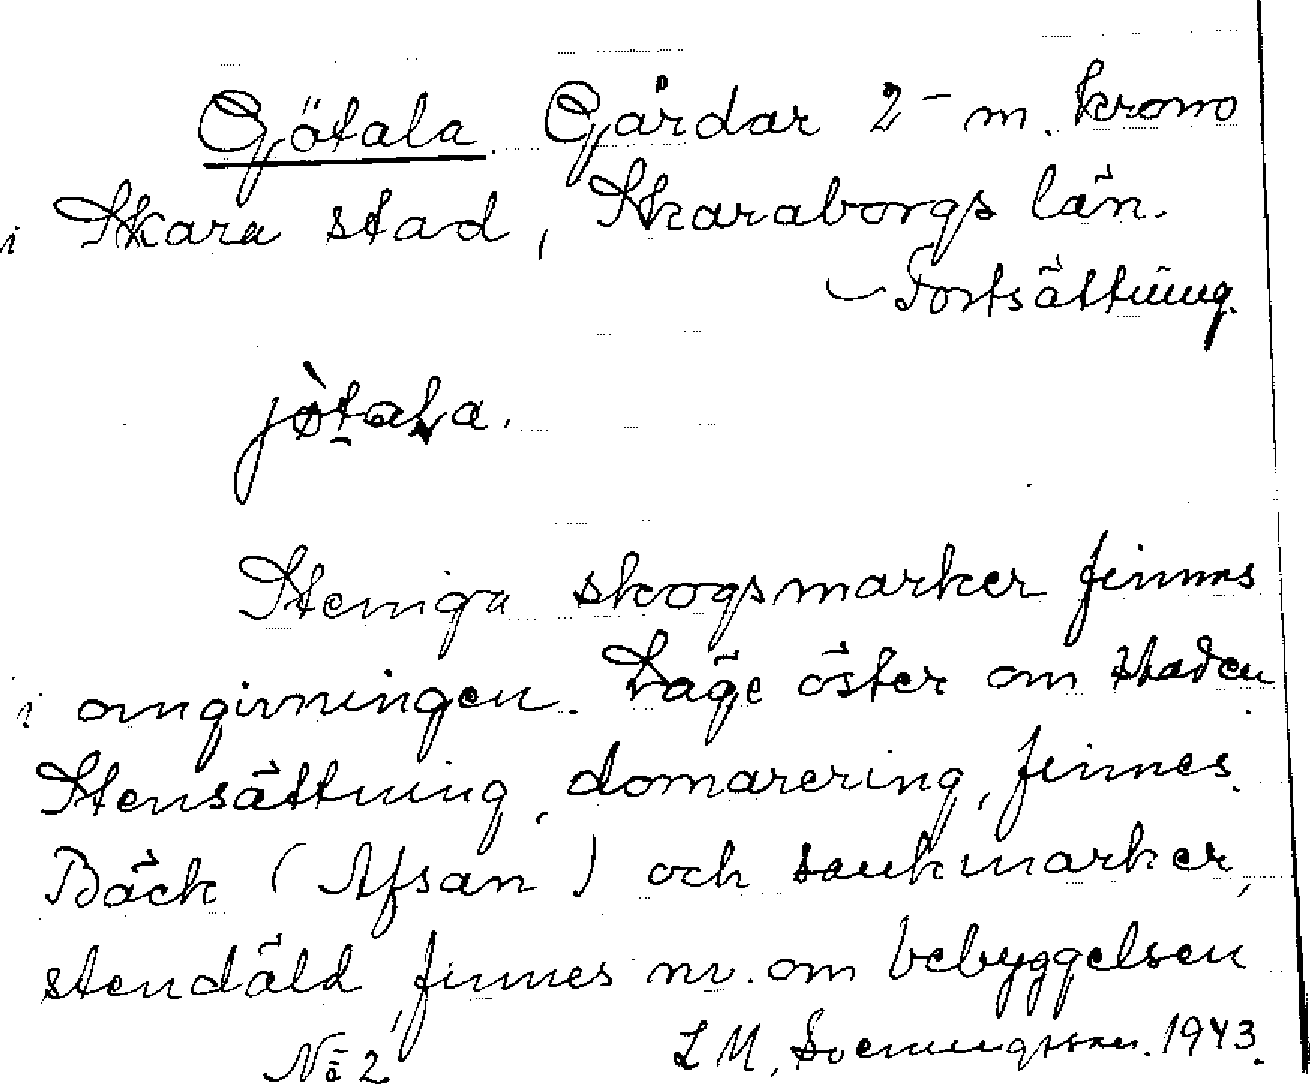 Götala. Gårdar 2 – m. krono
i Skara stad, Skaraborgs län.
– Fortsättning.
jø̀tala.
Steniga skogsmarker finnes
i omgivningen. Läge öster om staden.
Stensättning, domarering, finnes.
Bäck (Afsan) och sankmarker,
stendäld, finnes nv. om bebyggelsen
No 2 L M, Svenungsson. 1943.